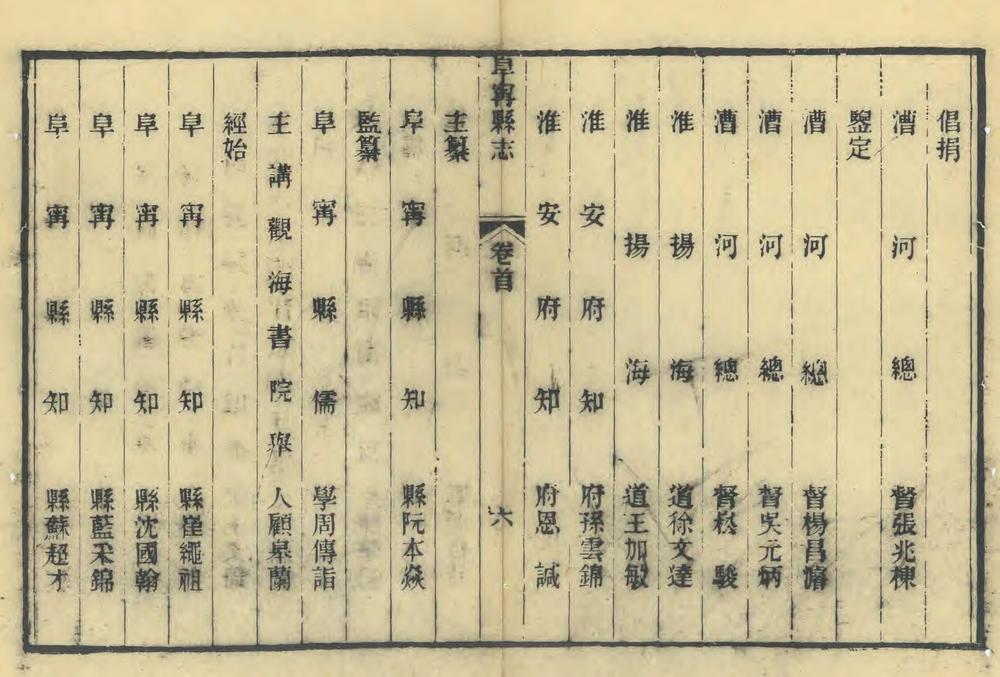 倡捐
漕河總督張兆棟
鑒定
漕河總督楊昌濬
漕河總督吳元炳
漕河總督崧駿
淮揚海道徐文達
淮揚海道王加敏
淮安府知府孫雲錦
淮安府知府恩諴
阜甯縣志 卷首 六
主纂
阜甯縣知縣阮本焱
監纂
阜甯縣儒學周傳詣
主講觀海書院舉人顧皋蘭
經始
阜甯縣知縣崔繩祖
阜甯縣知縣沈國翰
阜甯縣知縣藍采錦
阜甯縣知縣蘇超才